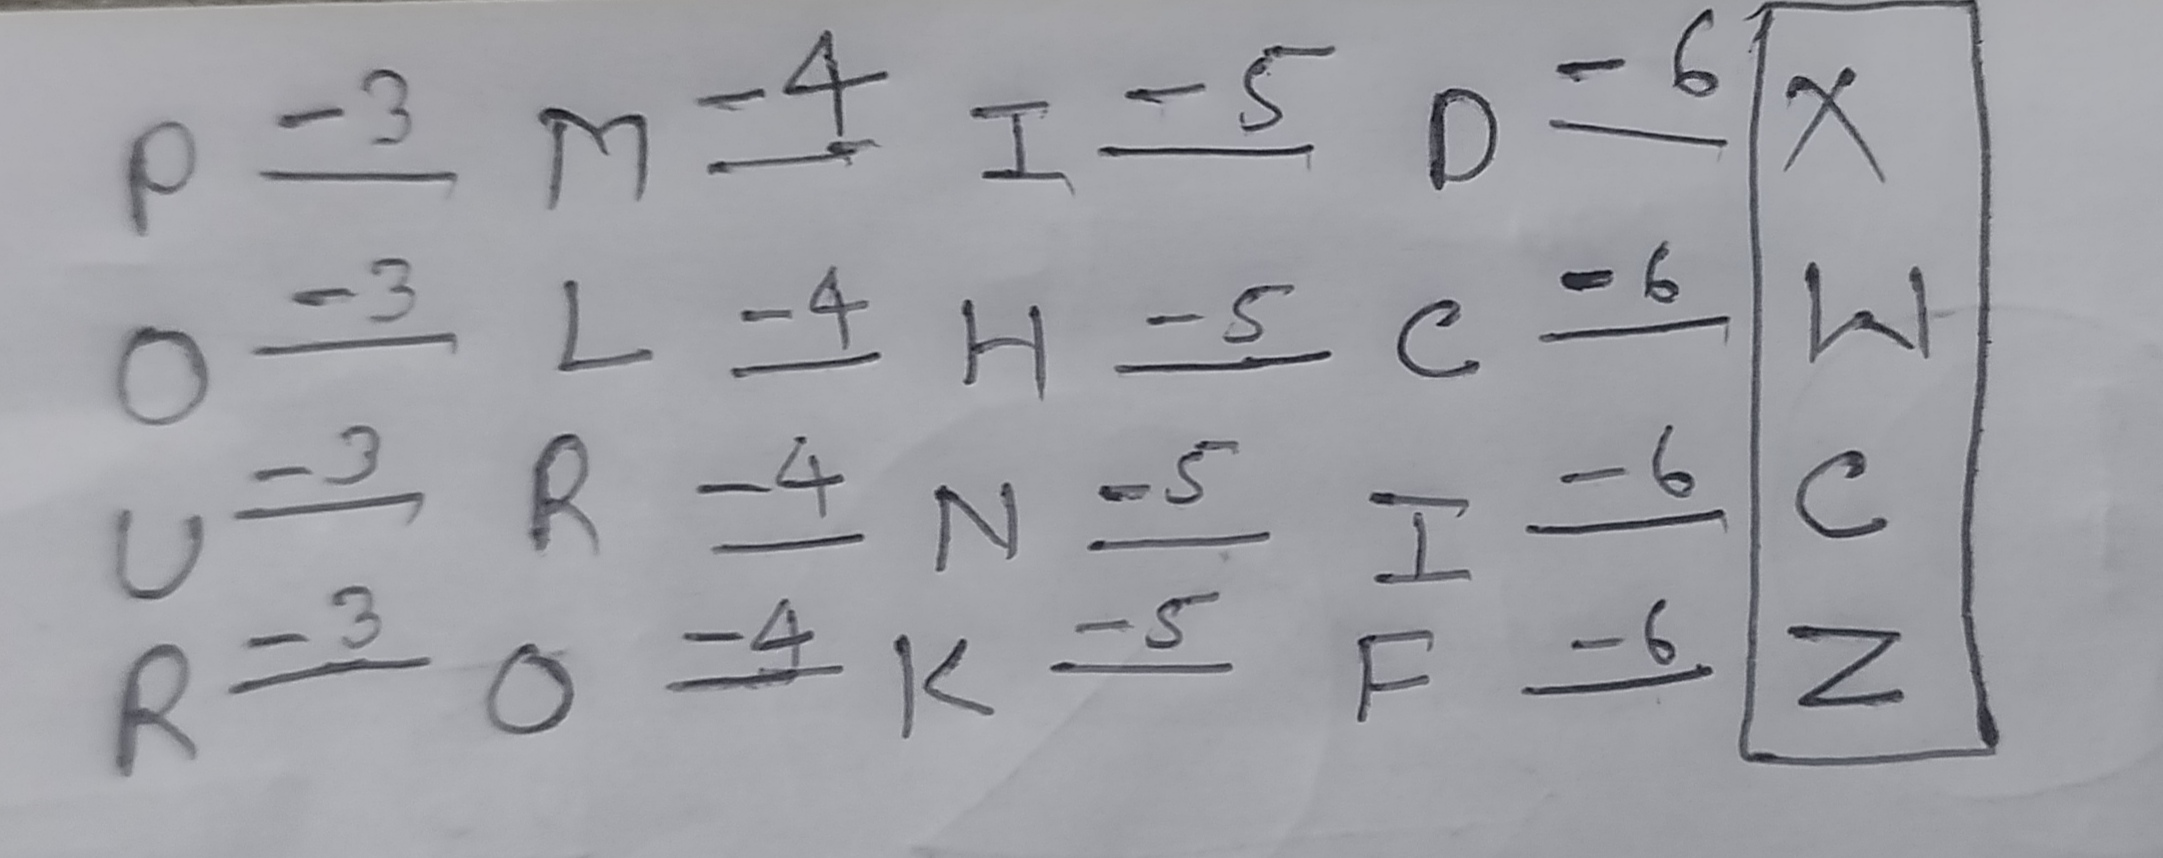 P -3 M -4 I -5 D -6 X
O -3 L -4 H -5 C -6 W
U -3 R -4 N -5 I -6 C
R -3 O -4 K -5 F -6 Z